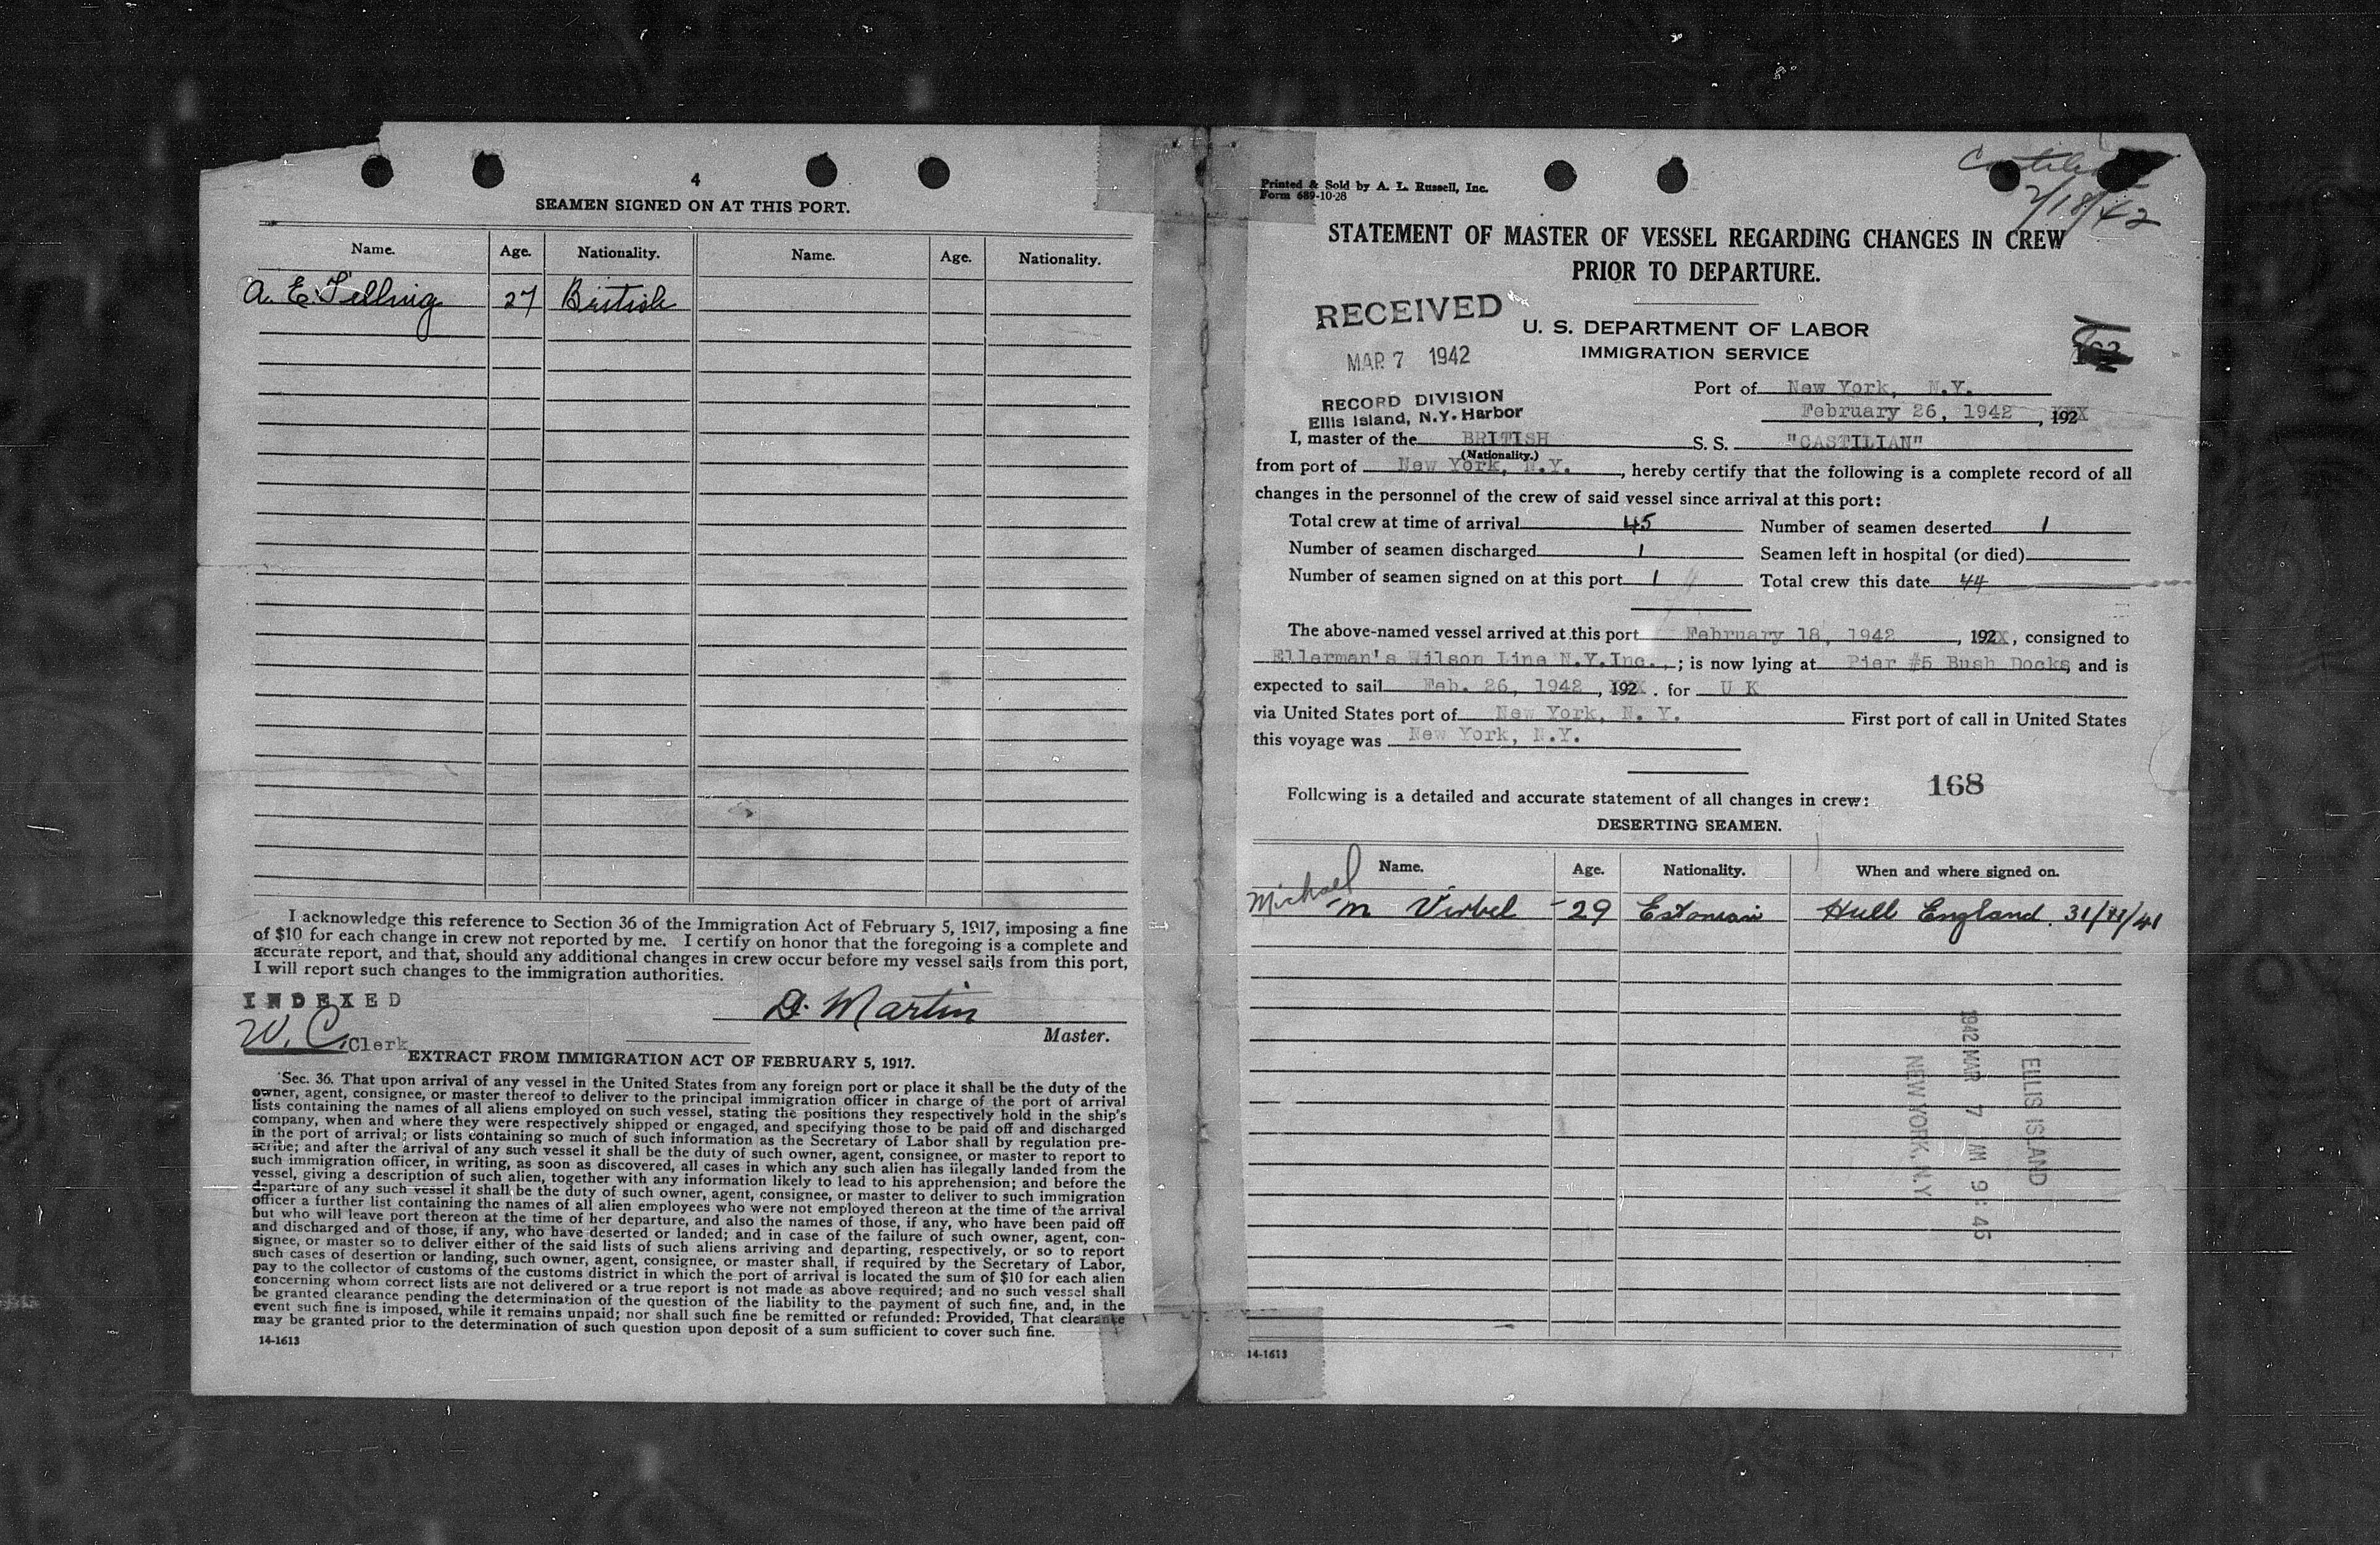 4
SEAMEN SIGNED ON AT THIS PORT.
Name. Age. Nationality. Name. Age. Nationality.
A. E. Telling 27 British
I acknowledge this reference to Section 36 of the Immigration Act of February 5, 1917, imposing a fine
of $10 for each change in crew not reported by me. I certify on honor that the foregoing is a complete and
accurate report, and that, should any additional changes in crew occur before my vessel sails from this port,
I will report such changes to the immigration authorities.
INDEXED
D. Martin
W. C. Clerk
Master.
EXTRACT FROM IMMIGRATION ACT OF FEBRUARY 5, 1917.
Sec. 36. That upon arrival of any vessel in the United States from any foreign port or place it shall be the duty of the
owner, agent, consignee, or master thereof to deliver to the principal immigration officer in charge of the port of arrival
lists containing the names of all aliens employed on such vessel, stating the positions they respectively hold in the ship's
company, when and where they were respectively shipped or engaged, and specifying those to be paid off and discharged
in the port of arrival; or lists containing so much of such information as the Secretary of Labor shall by regulation pre-
scribe; and after the arrival of any such vessel it shall be the duty of such owner, agent, consignee, or master to report to
such immigration officer, in writing, as soon as discovered, all cases in which any such alien has illegally landed from the
vessel, giving a description of such alien, together with any information likely to lead to his apprehension; and before the
departure of any such vessel it shall be the duty of such owner, agent, consignee, or master to deliver to such immigration
officer a further list containing the names of all alien employees who were not employed thereon at the time of the arrival
but who will leave port thereon at the time of her departure, and also the names of those, if any, who have been paid off
and discharged and of those, if any, who have deserted or landed; and in case of the failure of such owner, agent, con-
signee, or master so to deliver either of the said lists of such aliens arriving and departing, respectively, or so to report
such cases of desertion or landing, such owner, agent, consignee, or master shall, if required by the Secretary of Labor,
pay to the collector of customs of the customs district in which the port of arrival is located the sum of $10 for each alien
concerning whom correct lists are not delivered or a true report is not made as above required; and no such vessel shall
be granted clearance pending the determination of the question of the liability to the payment of such fine, and, in the
event such fine is imposed, while it remains unpaid; nor shall such fine be remitted or refunded: Provided, That clearance
may be granted prior to the determination of such question upon deposit of a sum sufficient to cover such fine.
14-1613
Printed & Sold by A. L. Russell, Inc.
Form 689-10-28
2/18/42
STATEMENT OF MASTER OF VESSEL REGARDING CHANGES IN CREW
PRIOR TO DEPARTURE.
RECEIVED
U. S. DEPARTMENT OF LABOR
MAR 7 1942
IMMIGRATION SERVICE
Port of New York, N.Y.
RECORD DIVISION
Ellis Island, N.Y. Harbor
February 26, 1942, 192XX
I, master of the BRITISH S. S. "CASTILIAN"
(Nationality.)
from port of New York, N.Y., hereby certify that the following is a complete record of all
changes in the personnel of the crew of said vessel since arrival at this port:
Total crew at time of arrival 45 Number of seamen deserted 1
Number of seamen discharged 1 Seamen left in hospital (or died)
Number of seamen signed on at this port 1 Total crew this date 44
The above-named vessel arrived at this port February 18, 1942, 192X, consigned to
Ellerman's Wilson Line N.Y.Inc.,; is now lying at Pier #5 Bush Docks, and is
expected to sail Feb. 26, 1942, 192X. for U K
via United States port of New York, N. Y. First port of call in United States
this voyage was New York, N.Y.
168
Following is a detailed and accurate statement of all changes in crew:
DESERTING SEAMEN.
Name. Age. Nationality. When and where signed on.
Michael
M Virbel 29 Estonian Hull England. 31/ /41
ELLIS ISLAND
1942 MAR 7 AM 9:46
NEW YORK, N.Y
14-1613